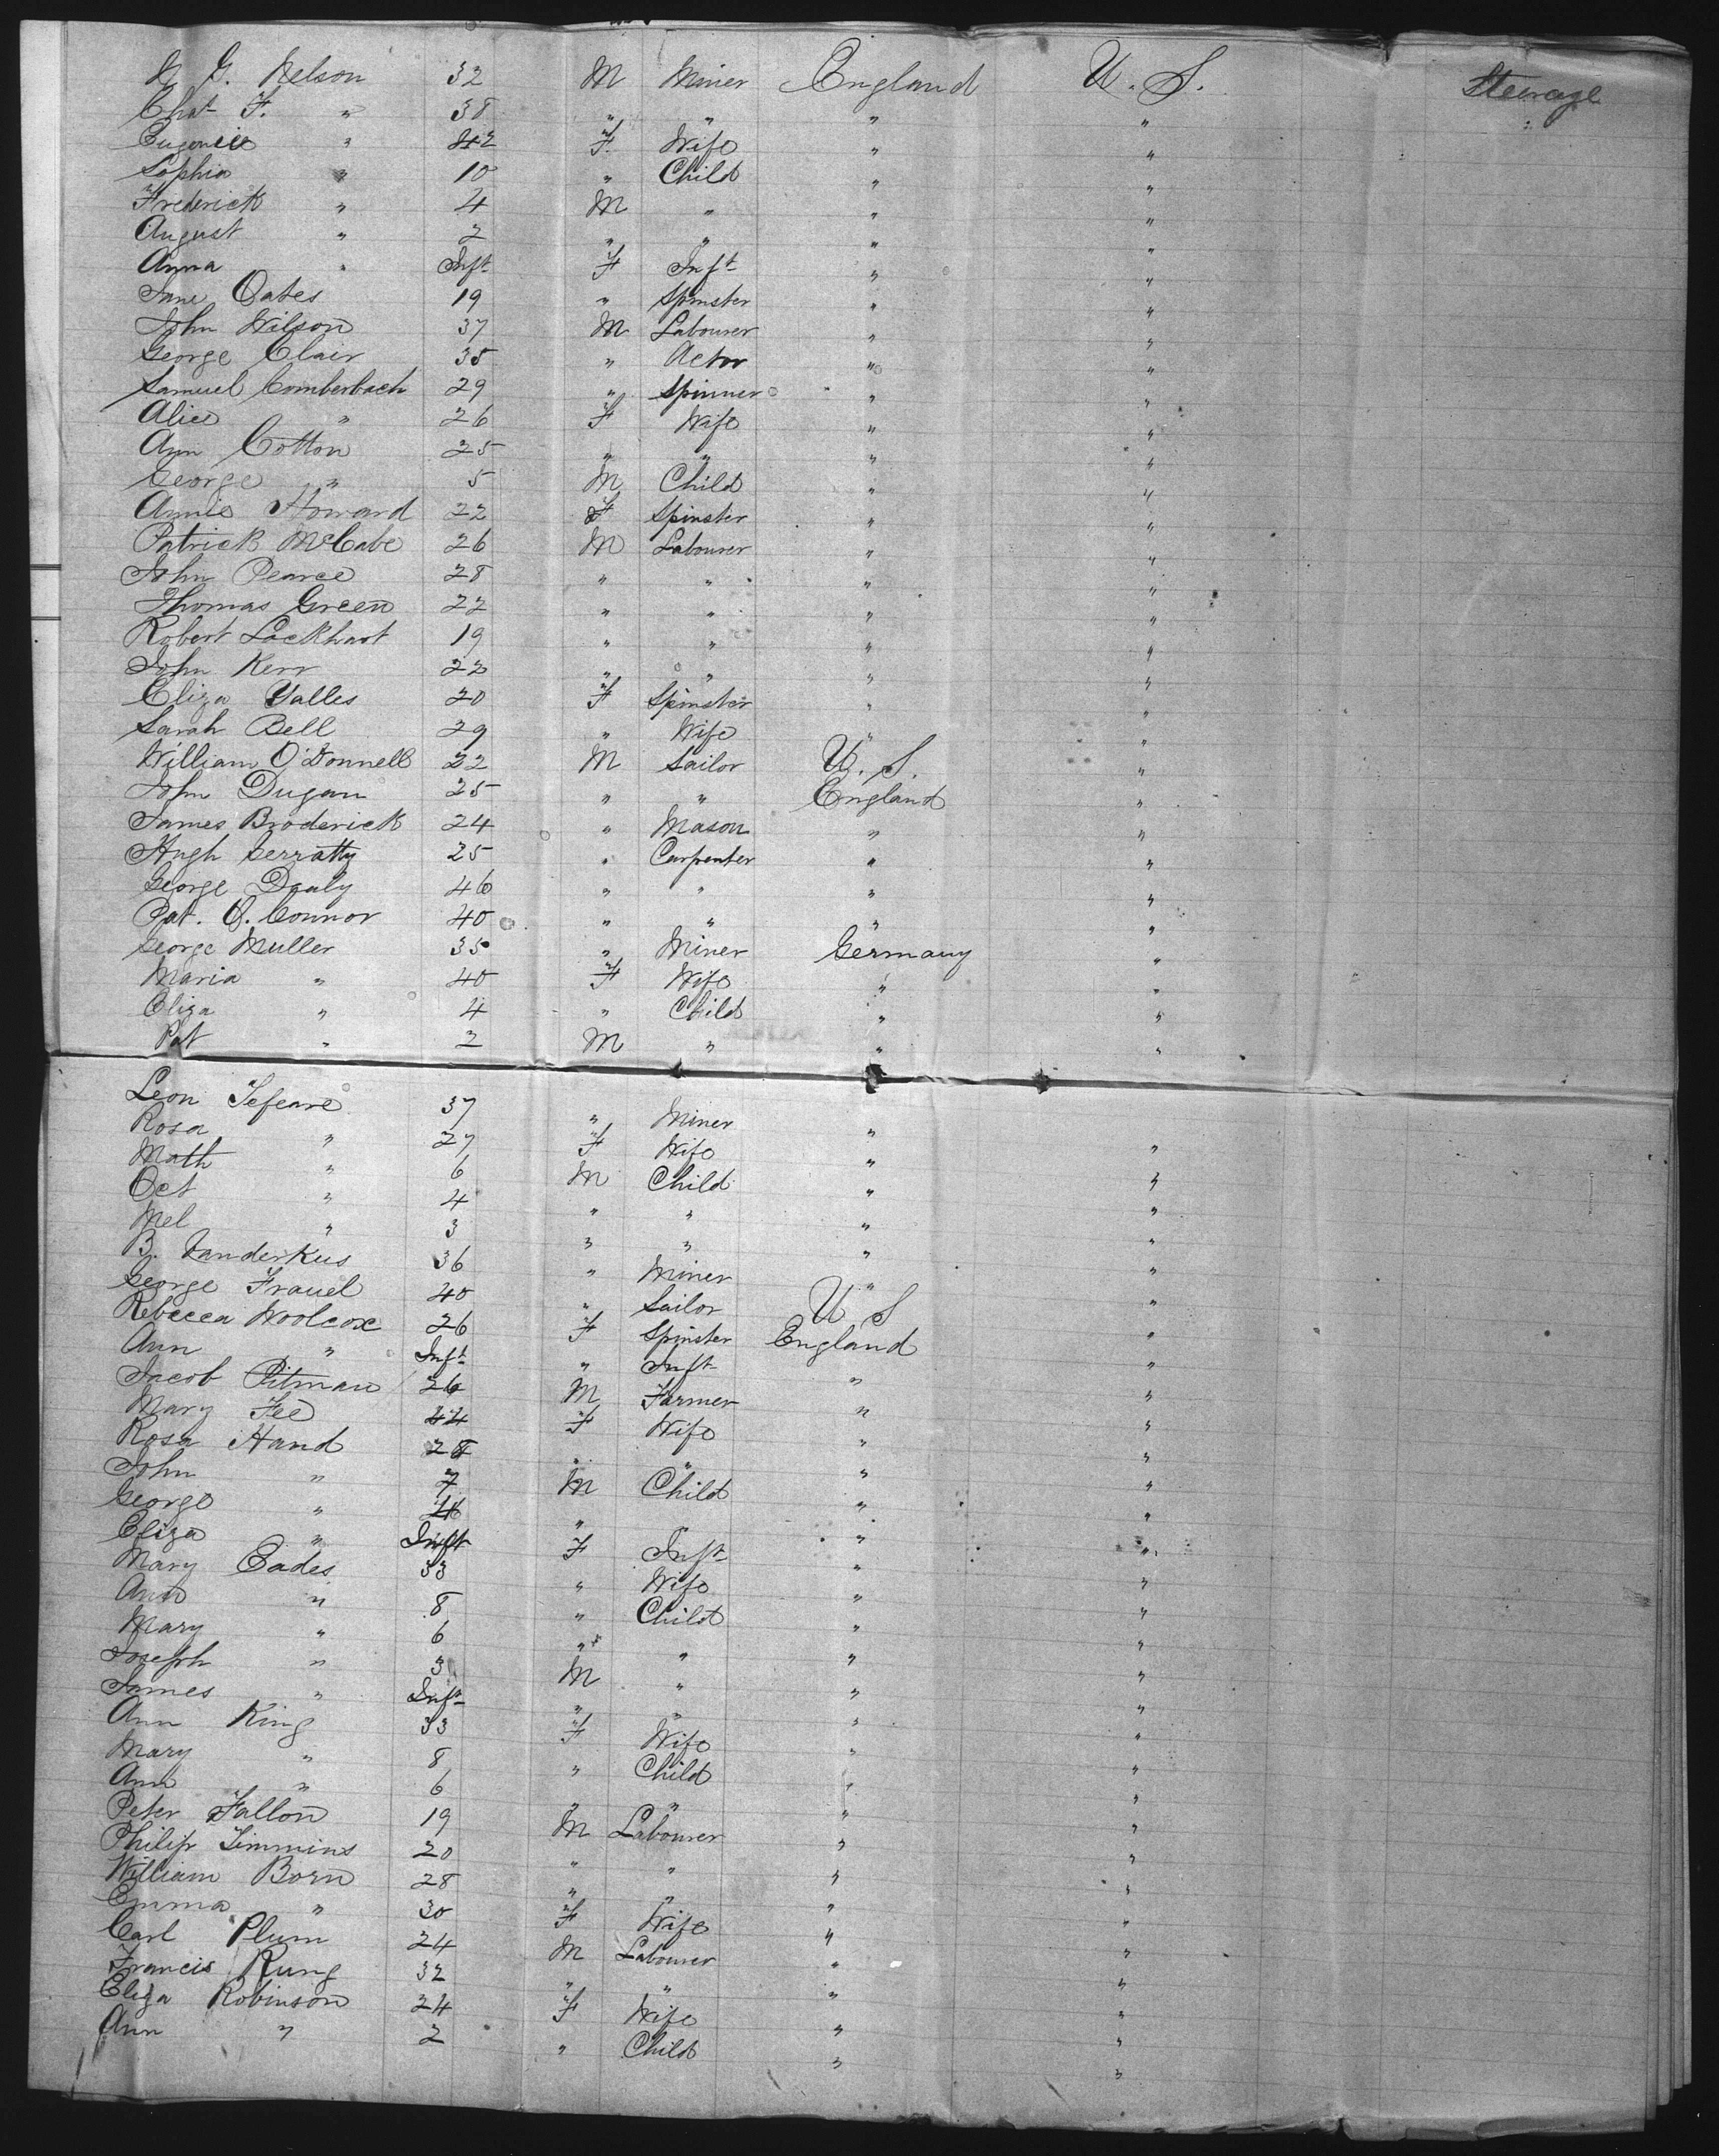 N. G. Nelson 32 M Miner England U. S. Steerage
Chat F. " 38 " " " "
Eugenie " 42 F. Wife " "
Sophia " 10 " Child " "
Frederick " 4 M " " "
August " 2 " " " "
Anna " Inft F Inft " "
Jane Oates 19 " Spinster " "
John Wilson 37 M Labourer " "
George Clair 35 " Actor " "
Samuel Comberbach 29 " Spinner " "
Alice " 26 F Wife " "
Ann Cotton 25 " " " "
George " 5 M Child " "
Annie Howard 22 F Spinster " "
Patrick McCabe 26 M Labourer " "
John Pearce 28 " " " "
Thomas Green 22 " " " "
Robert Lockhart 19 " " " "
John Kerr 22 " " " "
Eliza Yalles 20 F Spinster " "
Sarah Bell 29 " Wife " "
William O'Donnell 22 M Sailor U. S. "
John Dugan 25 " " England "
James Broderick 24 " Mason " "
Hugh Gerratty 25 " Carpenter " "
George Dealy 46 " " " "
Pat. O. Connor 40 " " " "
George Muller 35 " Miner Germany "
Maria " 40 F Wife " "
Eliza " 4 " Child " "
Pat " 2 M " " "
Leon 37 " Miner "
Rosa " 27 F Wife " "
Math " 6 M Child " "
Oct " 4 " " " "
Mel " 3 " " " "
B. Vanderkus 36 " Miner " "
George Frauel 40 " Sailor U S "
Rebecca Woolcox 26 F Spinster England "
Ann " Inft " Inft " "
Jacob Pitman 26 M Farmer " "
Mary Fee 44 F Wife " "
Rosa Hand 28 " " " "
John " 7 M Child " "
George " 4 " " " "
Eliza " Inft F Inft " "
Mary Eades 33 " Wife " "
Ann " 8 " Child " "
Mary " 6 " " " "
Joseph " 3 M " " "
James " Inft " " " "
Ann King 33 F Wife " "
Mary " 8 " Child " "
Ann " 6 " " " "
Peter Fallon 19 M Labourer " "
Philip Timmins 20 " " " "
William Born 28 " " " "
Emma " 30 F Wife " "
Carl Plum 24 M Labourer " "
Francis Rung 32 " " " "
Eliza Robinson 24 F Wife " "
Ann " 2 " Child " "